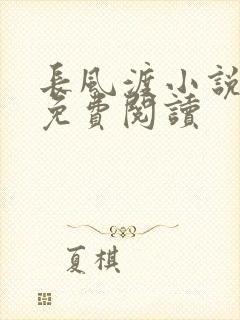 長風渡小說
免費閱讀
夏棋